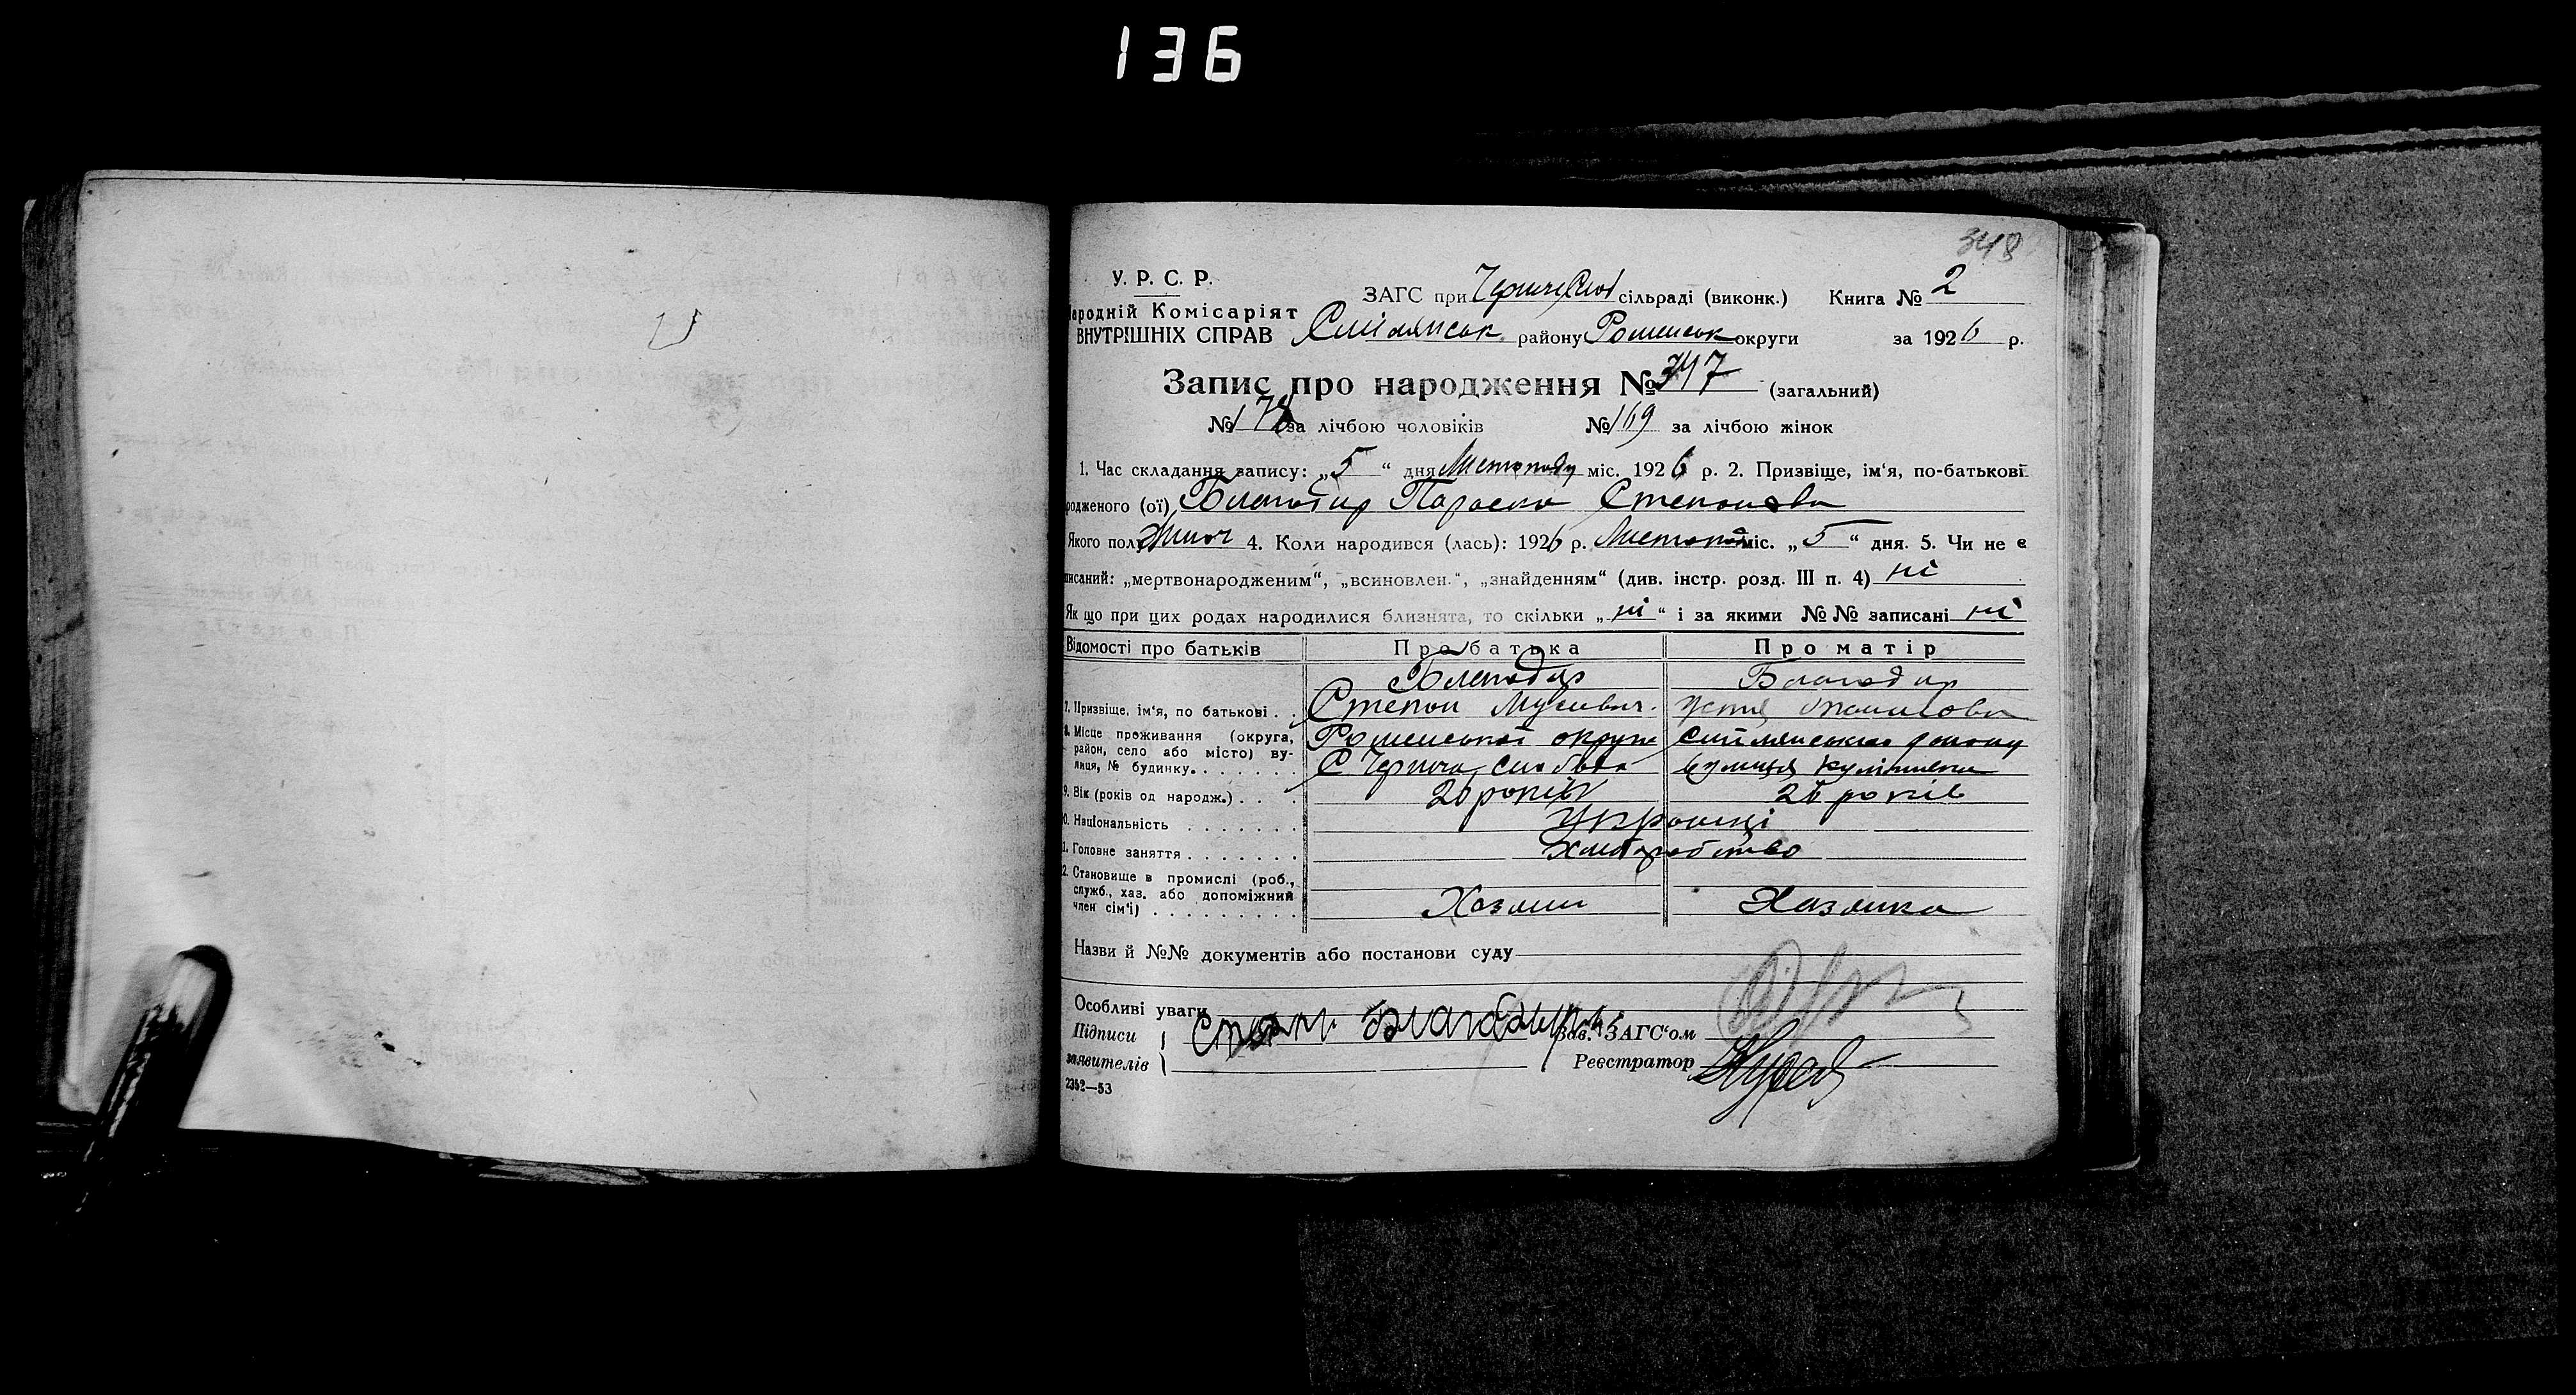 136
348
У. Р. С. Р.
ЗАГС при Черчечслоб сільраді (виконк.) Книга № 2
Народній Комісаріят
ВНУТРІШНІХ СПРАВ Смілянськ району Роменськ округи за 1926 р.
Запис про народження № 347 (загальний)
№ 178 за лічбою чоловіків № 169 за лічбою жінок
1. Час складання запису: „5“ дня Листопаду міс. 1926 р. 2. Призвіще, ім‘я, по-батькові
родженого (ої) Параска Степанова
Якого полу жіноч 4. Коли народився (лась): 1926 р. Листопад міс. „5“ дня. 5. Чи не є
писаний: „мертвонародженим“, „всиновлен.“, „знайденням“ (див. інстр. розд. III п. 4) ні
Як що при цих родах народилися близнята, то скільки „ні“ і за якими №№ записані ні
Відомості про батьків Про батька Про матір
7. Призвіще, ім‘я, по батькові . . Степан Мусієвич
8. Місце проживання (округа, Роменської округи Смілянського району
район, село або місто) ву-
лиця, № будинку. . . . . . . С слобода вулиця
9. Вік (років од народж.) . . . 26 років 26 років
10. Національність . . . . . . . Українці
11. Головне заняття . . . . . . . Хліборобство
12. Становище в промислі (роб.,
служб., хаз. або допоміжний
член сім‘ї) . . . . . . . . . Хазяин Хазяйка
Назви й №№ документів або постанови суду
Особливі уваги
Підписи Зав. ЗАГС‘ом
заявителів Реєстратор
2352—53